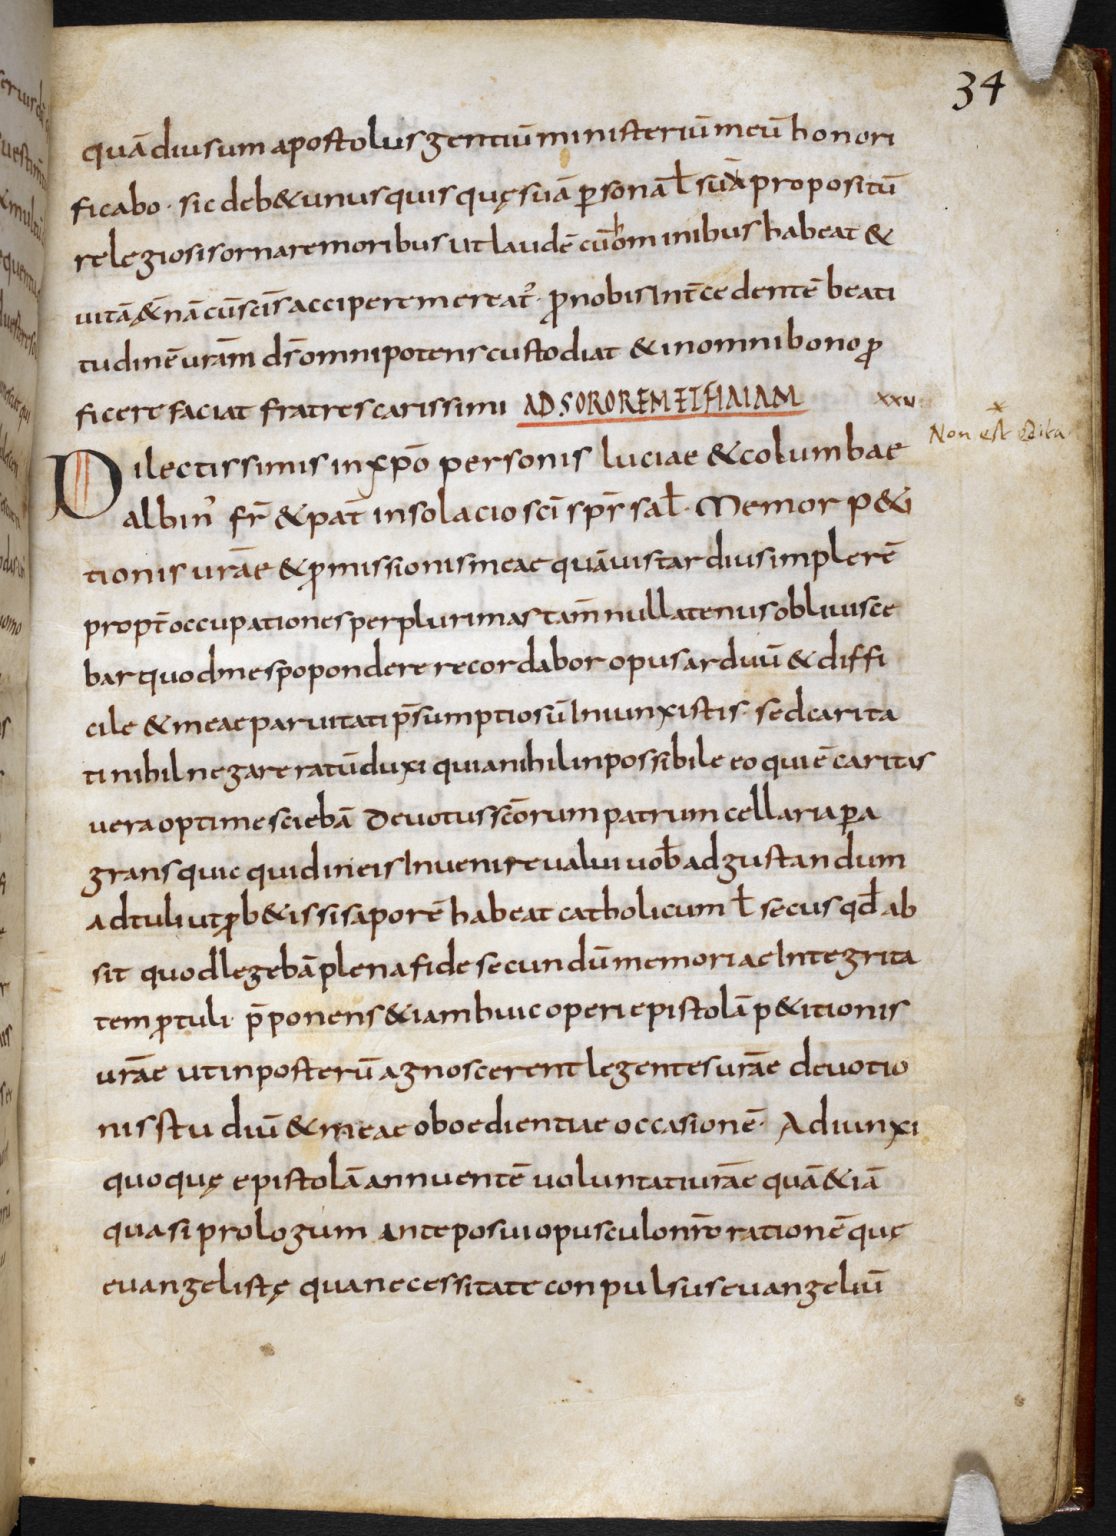 34
quā diu sum apostolus gentiū ministeriū meū honori
ficabo · sic deb& unus quis quę suā personā ł suū propositū
relegiosis ornare moribus ut laudē cū hominibus habeat &
uitā &nā cū scīs accipere mereat᾽ · pro nobis Int̄cedentē beati
tudinē urām ds̄ omnipotens custodiat & in omni bono pro
ficere faciat fratres carissimi AD SOROREM ET FILIAM xxv
Non est edita
Dilectissimis in xp̄o personis luciae & columbae
albin᾽ fr̄ & pat̄ in solacio scī sp̄s sal̄ · Memor p&i
tionis urāe & promissionis meae quāuis tardius implerē
propt̄ occupationes per plurimas tam̄ nullatenus obliuisce
bar quod me spopondere recordabor opus arduū & diffi
cile & meae paruitati p̄sumptiosū Iniunxistis · sed carita
ti nihil negare ratū duxi quia nihil inpossibile eo qui ē caritas
uera optime sciebā Deuotus scōrum patrum cellaria pera
grans quic quid in eis Inuenire ualui uob̄ ad gustandum
adtuli ut prob&is si saporē habeat catholicum ł secus qd̄ ab
sit quod legebā plena fide secundū memoriae Integrita
tem protuli · p̄ponens & iam huic operi epistolā p&itionis
urāe ut in posterū agnoscerent legentes urāe deuotio
nis studiū & meae oboedientiae occasionē · Adiunxi
quoquę epistolā annuentē uoluntati urāe quā &iā
quasi prologum anteposui opusculo nr̄o rationē quę
euangelistę qua necessitate conpulsus euangeliū